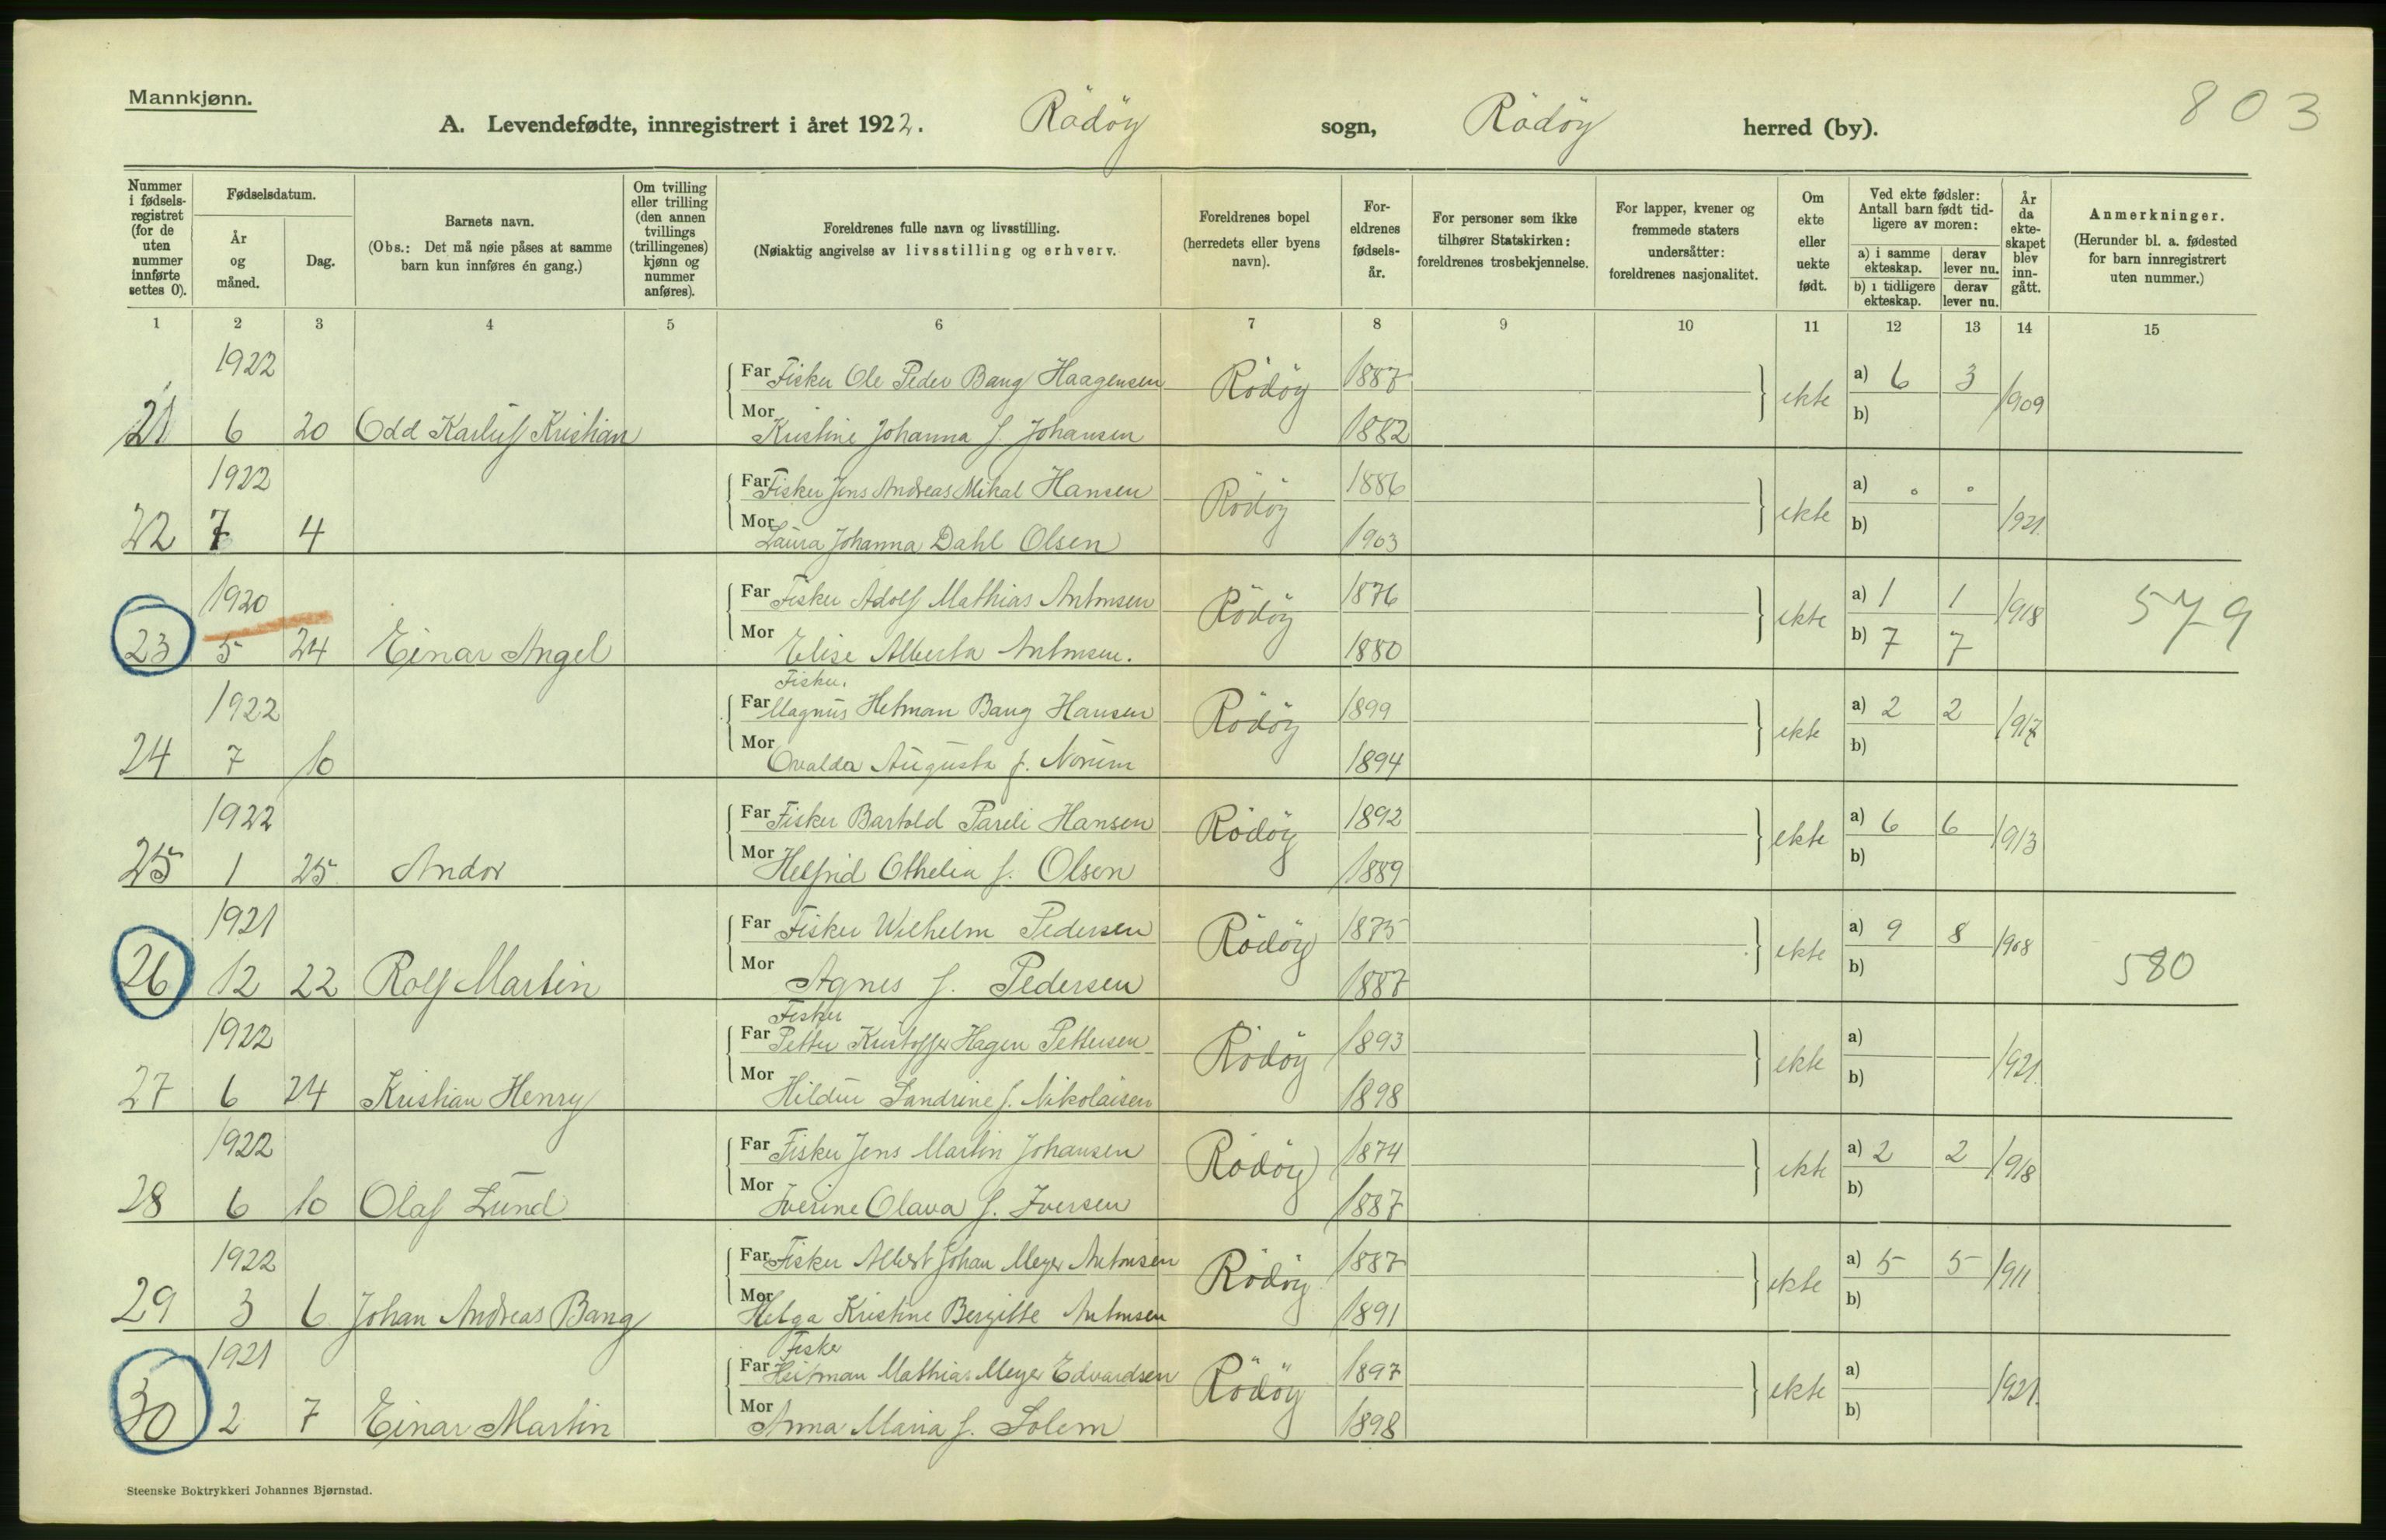 Mannkjønn.
803
A. Levendefødte, innregistrert i året 1922. Rödöy sogn, Rödöy herred (by).
Nummer i fødsels-registret (for de uten nummer innførte settes 0).
Fødselsdatum.
År og måned.
Dag.
Barnets navn.
(Obs.: Det må nøie påses at samme barn kun innføres én gang.)
Om tvilling eller trilling (den annen tvillings (trillingenes) kjønn og nummer anføres).
Foreldrenes fulle navn og livsstilling.
(Nøiaktig angivelse av livsstilling og erhverv.
Foreldrenes bopel (herredets eller byens navn).
For-eldrenes fødsels-år.
For personer som ikke tilhører Statskirken: foreldrenes trosbekjennelse.
For lapper, kvener og fremmede staters undersåtter: foreldrenes nasjonalitet.
Om ekte eller uekte født.
Ved ekte fødsler: Antall barn født tid-ligere av moren:
a) i samme ekteskap. derav lever nu.
b) i tidligere ekteskap. derav lever nu.
År da ekte-skapet blev inn-gått.
Anmerkninger.
(Herunder bl. a. fødested for barn innregistrert uten nummer.)
1 2 3 4 5 6 7 8 9 10 11 12 13 14 15
1922 Far Fisker Ole Peder Bang Haagensen Rödöy 1887 ekte a) 6 3 1909
21 6 20 Odd Karluf Kristian Mor Kristine Johanna f. Johansen 1882 b)
1922 Far Fisker Jens Andreas Mikal Hansen Rödöy 1886 ekte a) 0 0 1921
22 7 4 Mor Laura Johanna Dahl Olsen 1903 b)
1920 Far Fisker Adolf Mathias Antonsen Rödöy 1876 ekte a) 1 1 1918 579
23 5 24 Einar Angel Mor Elise Alberta Antonsen. 1880 b) 7 7
Fisker.
1922 Far Magnus Hetman Bang Hansen Rödöy 1899 ekte a) 2 2 1917
24 7 10 Mor Ovalda Augusta f. Norum 1894 b)
1922 Far Fisker Bartold Pareli Hansen Rödöy 1892 ekte a) 6 6 1913
25 1 25 Andor Mor Helfrid Othelia f. Olsen 1889 b)
1921 Far Fisker Wilhelm Pedersen Rödöy 1875 ekte a) 9 8 1908 580
26 12 22 Rolf Martin Mor Agnes f. Pedersen 1887 b)
Fisker
1922 Far Petter Kristoffer Hagen Pettersen Rödöy 1893 ekte a) 1921
27 6 24 Kristian Henry Mor Hildur Sandrine f. Nikolaisen 1898 b)
1922 Far Fisker Jens Martin Johansen Rödöy 1874 ekte a) 2 2 1918
28 6 10 Olaf Lund Mor Iverine Olava f. Iversen 1887 b)
1922 Far Fisker Albert Johan Meyer Antonsen Rödöy 1887 ekte a) 5 5 1911
29 3 6 Johan Andreas Bang Mor Helga Kristine Bergitte Antonsen 1891 b)
Fisker
1921 Far Heitman Mathias Meyer Edvardsen Rödöy 1897 ekte a) 1921
30 2 7 Einar Martin Mor Anna Maria f. Solem 1898 b)
Steenske Boktrykkeri Johannes Bjørnstad.